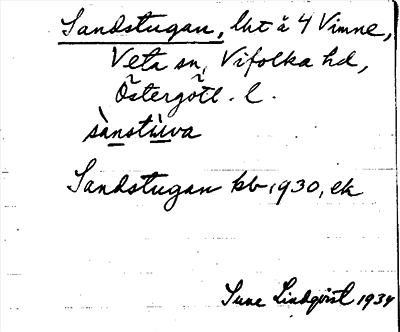 Sandstugan, lht å 4 Vimne,
Veta sn, Vifolka hd,
Östergötl. l.
sànstùva
Sandstugan kb 1930, ek
Sune Lindqvist 1934